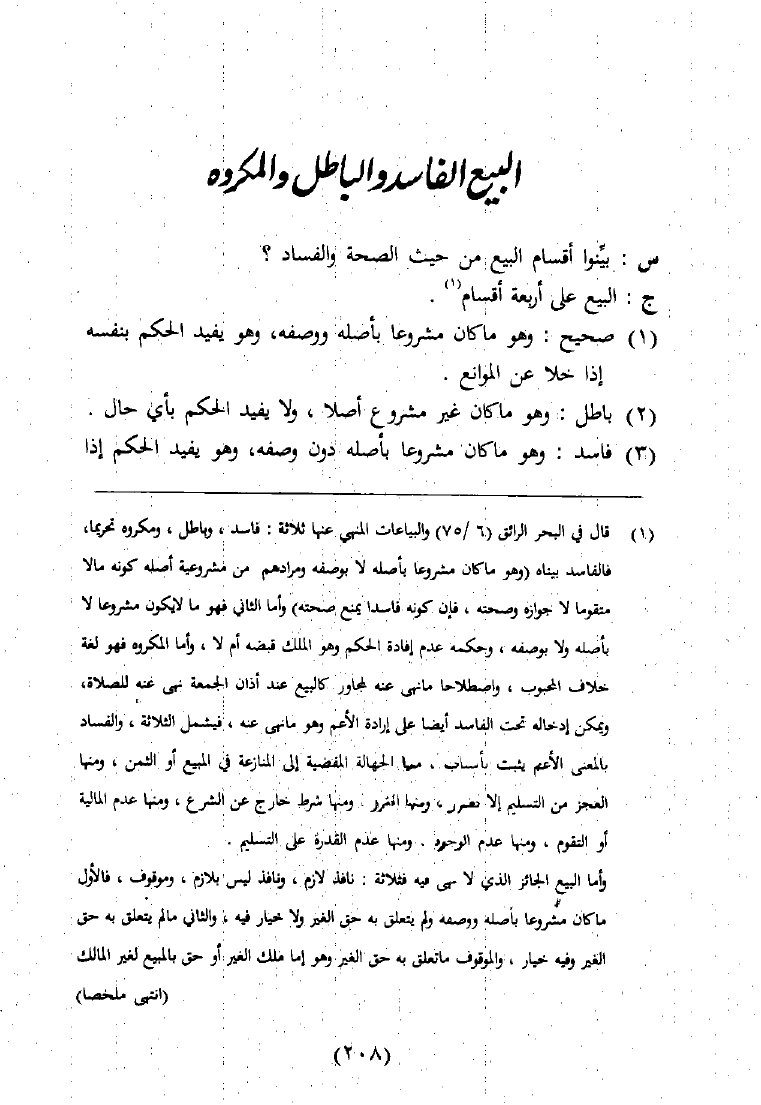 البيع الفاسد والباطل والمكروه
س : بيِّنوا أقسام البيع من حيث الصحة والفساد ؟
ج : البيع على أربعة أقسام(١) .
(١) صحيح : وهو ماكان مشروعا بأصله ووصفه، وهو يفيد الحكم بنفسه
إذا خلا عن الموانع .
(٢) باطل : وهو ماكان غير مشروع أصلا ، ولا يفيد الحكم بأي حال .
(٣) فاسد : وهو ماكان مشروعا بأصله دون وصفه، وهو يفيد الحكم إذا
(١) قال في البحر الرائق (٦ /٧٥) والبياعات المنهي عنها ثلاثة : فاسد ، وباطل ، ومكروه تحريما،
فالفاسد بيناه (وهو ماكان مشروعا بأصله لا بوصفه ومرادهم من مشروعية أصله كونه مالا
متقوما لا جوازه وصحته ، فإن كونه فاسدا يمنع صحته) وأما الثاني فهو ما لايكون مشروعا لا
بأصله ولا بوصفه ، وحكمه عدم إفادة الحكم وهو الملك قبضه أم لا ، وأما المكروه فهو لغة
خلاف المحبوب ، واصطلاحا مانهى عنه لمجاور كالبيع عند أذان الجمعة نهى عنه للصلاة،
ويمكن إدخاله تحت الفاسد أيضا على إرادة الأعم وهو مانهى عنه ، فيشمل الثلاثة ، والفساد
بالمعنى الأعم يثبت بأسباب ، منها الجهالة المفضية إلى المنازعة في المبيع أو الثمن ، ومنها
العجز من التسليم إلا بضرر ، ومنها الغرر . ومنها شرط خارج عن الشرع ، ومنها عدم المالية
أو التقوم ، ومنها عدم الوجود . ومنها عدم القدرة على التسليم .
وأما البيع الجائز الذي لا نهى فيه فثلاثة : نافذ لازم ، ونافذ ليس بلازم ، وموقوف ، فالأول
ماكان مشروعا بأصله ووصفه ولم يتعلق به حق الغير ولا خيار فيه ، والثاني مالم يتعلق به حق
الغير وفيه خيار ، والموقوف ماتعلق به حق الغير وهو إما ملك الغير أو حق بالمبيع لغير المالك
(انتهى ملخصا)
(٢٠٨)